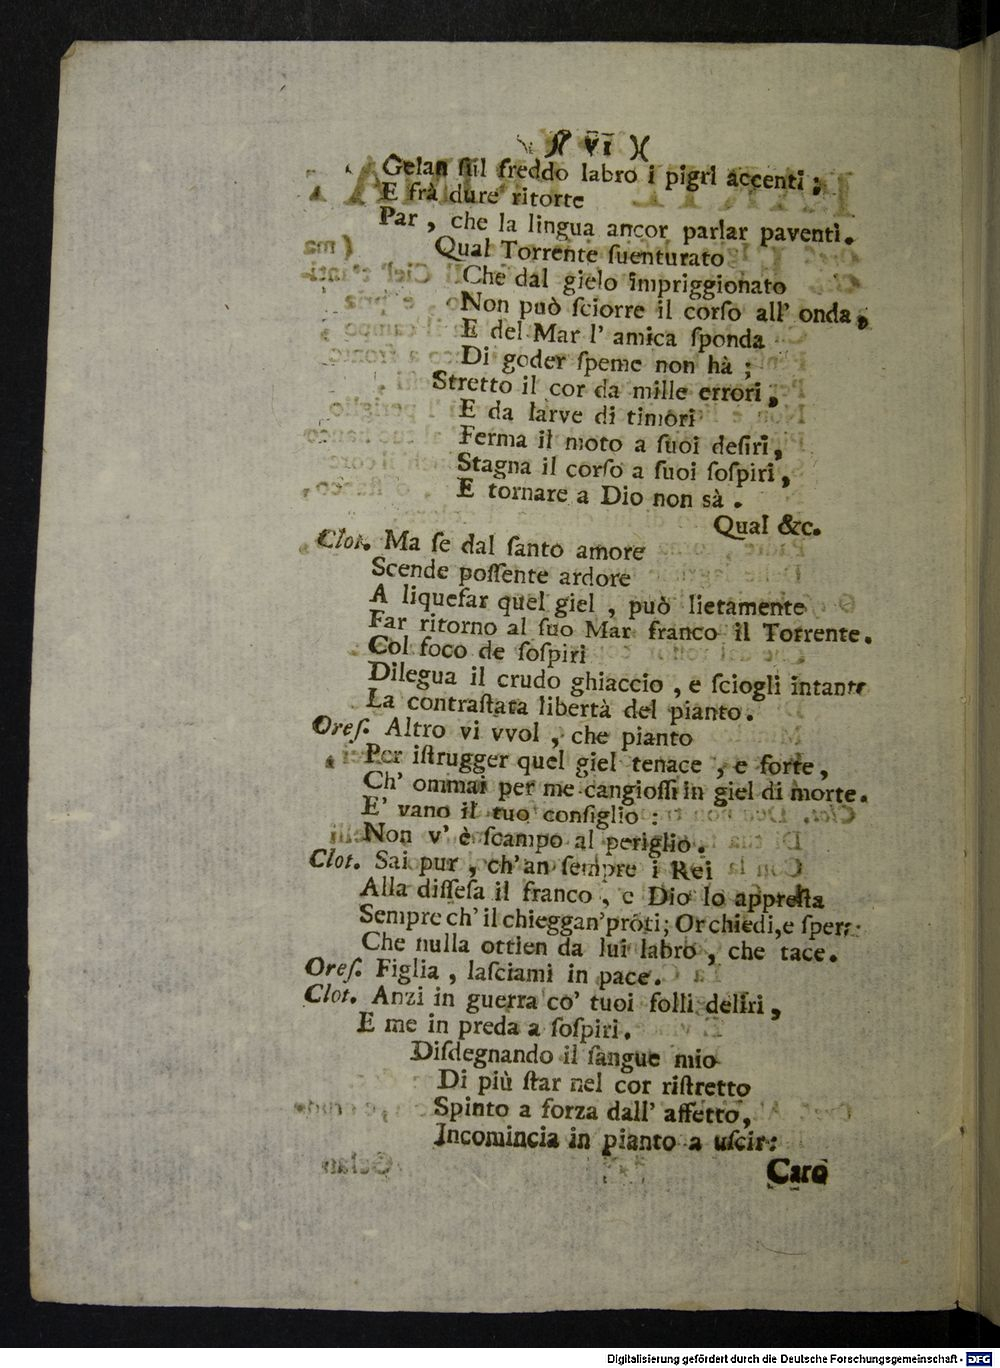 )( VI )(
Gelan sùl freddo labro i pigri accenti;
E frà dure ritorte
Par, che la lingua ancor parlar paventi.
Qual Torrente ſuenturato
Che dal gielo impriggionato
Non può ſciorre il corſo all' onda,
E del Mar l' amica ſponda
Di goder ſpeme non hà;
Stretto il cor da mille errori,
E da larve di timori
Ferma il moto a ſuoi deſiri,
Stagna il corſo a ſuoi ſoſpiri,
E tornare a Dio non sà.
Qual &c.
Clot. Ma ſe dal ſanto amore
Scende poſſente ardore
A liquefar quel giel, può lietamente
Far ritorno al ſuo Mar franco il Torrente.
Col foco de ſoſpiri
Dilegua il crudo ghiaccio, e ſciogli intante
La contraſtata libertà del pianto.
Oreſ. Altro vi vvol, che pianto
Per iſtrugger quel giel tenace, e forte,
Ch' ommai per me cangioſſi in giel di morte.
E' vano il tuo conſiglio:
Non v' è ſcampo al periglio.
Clot. Sai pur, ch' an ſempre i Rei
Alla diffeſa il franco, e Dio lo appreſta
Sempre ch' il chieggan' prōti; Or chiedi, e ſpera
Che nulla ottien da lui labro, che tace.
Oreſ. Figlia, laſciami in pace.
Clot. Anzi in guerra co' tuoi folli deliri,
E me in preda a ſoſpiri.
Diſdegnando il ſangue mio
Di più ſtar nel cor riſtretto
Spinto a forza dall' affetto,
Incomincia in pianto a uſcir:
Caro
Digitalisierung gefördert durch die Deutsche Forschungsgemeinschaft - DFG